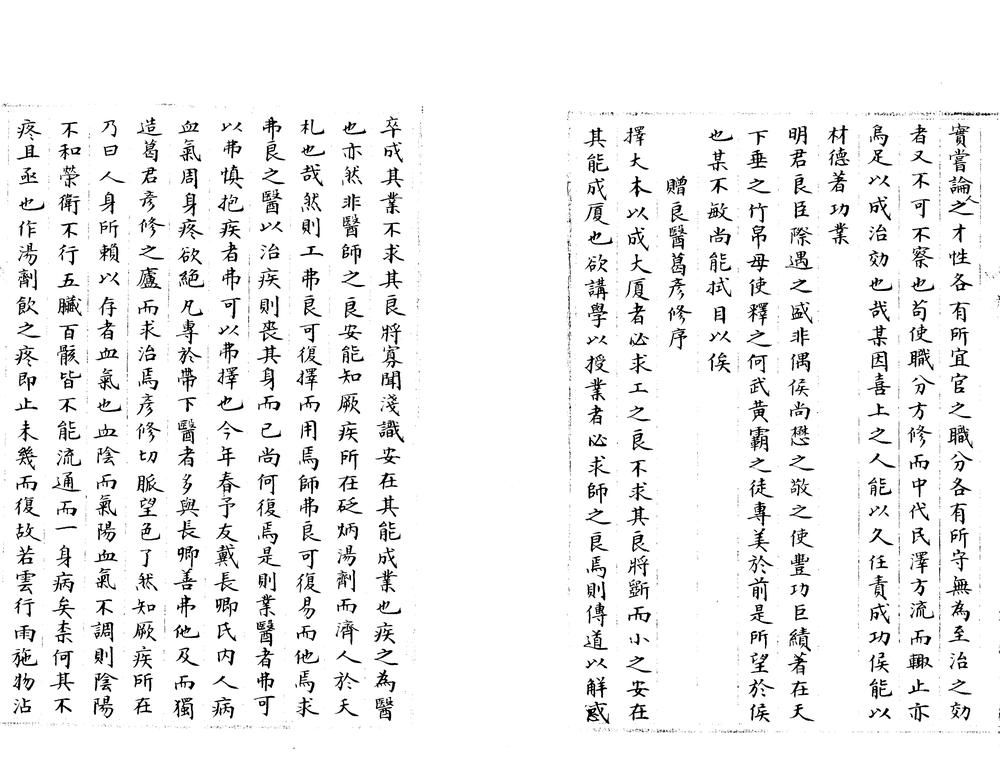 實嘗論人之才性各有所宜官之職分各有所守無為至治之効
者又不可不察也苟使職分方修而中代民澤方流而輙止亦
烏足以成治効也哉某因喜上之人能以久任責成功侯能以
材德著功業
明君良臣際遇之盛非偶侯尚懋之敬之使豐功巨績著在天
下垂之竹帛毋使釋之何武黃霸之徒專美於前是所望於侯
也某不敏尚能拭目以俟
贈良醫葛彥修序
擇大本以成大厦者必求工之良不求其良將斵而小之安在
其能成厦也欲講學以授業者必求師之良焉則傳道以解惑
卒成其業不求其良將寡聞淺識安在其能成業也疾之為醫
也亦然非醫師之良安能知厥疾所在砭焫湯劑而濟人於夭
札也哉然則工弗良可復擇而用焉師弗良可復易而他焉求
弗良之醫以治疾則喪其身而已尚何復焉是則業醫者弗可
以弗慎抱疾者弗可以弗擇也今年春予友戴長卿氏内人病
血氣周身疼欲絕凡專於帶下醫者多與長卿善弗他及而獨
造葛君彥修之廬而求治焉彥修切脈望色了然知厥疾所在
乃曰人身所賴以存者血氣也血陰而氣陽血氣不調則陰陽
不和榮衛不行五臟百骸皆不能流通而一身病矣柰何其不
疼且亟也作湯劑飲之疼即止未幾而復故若雲行雨施物沾